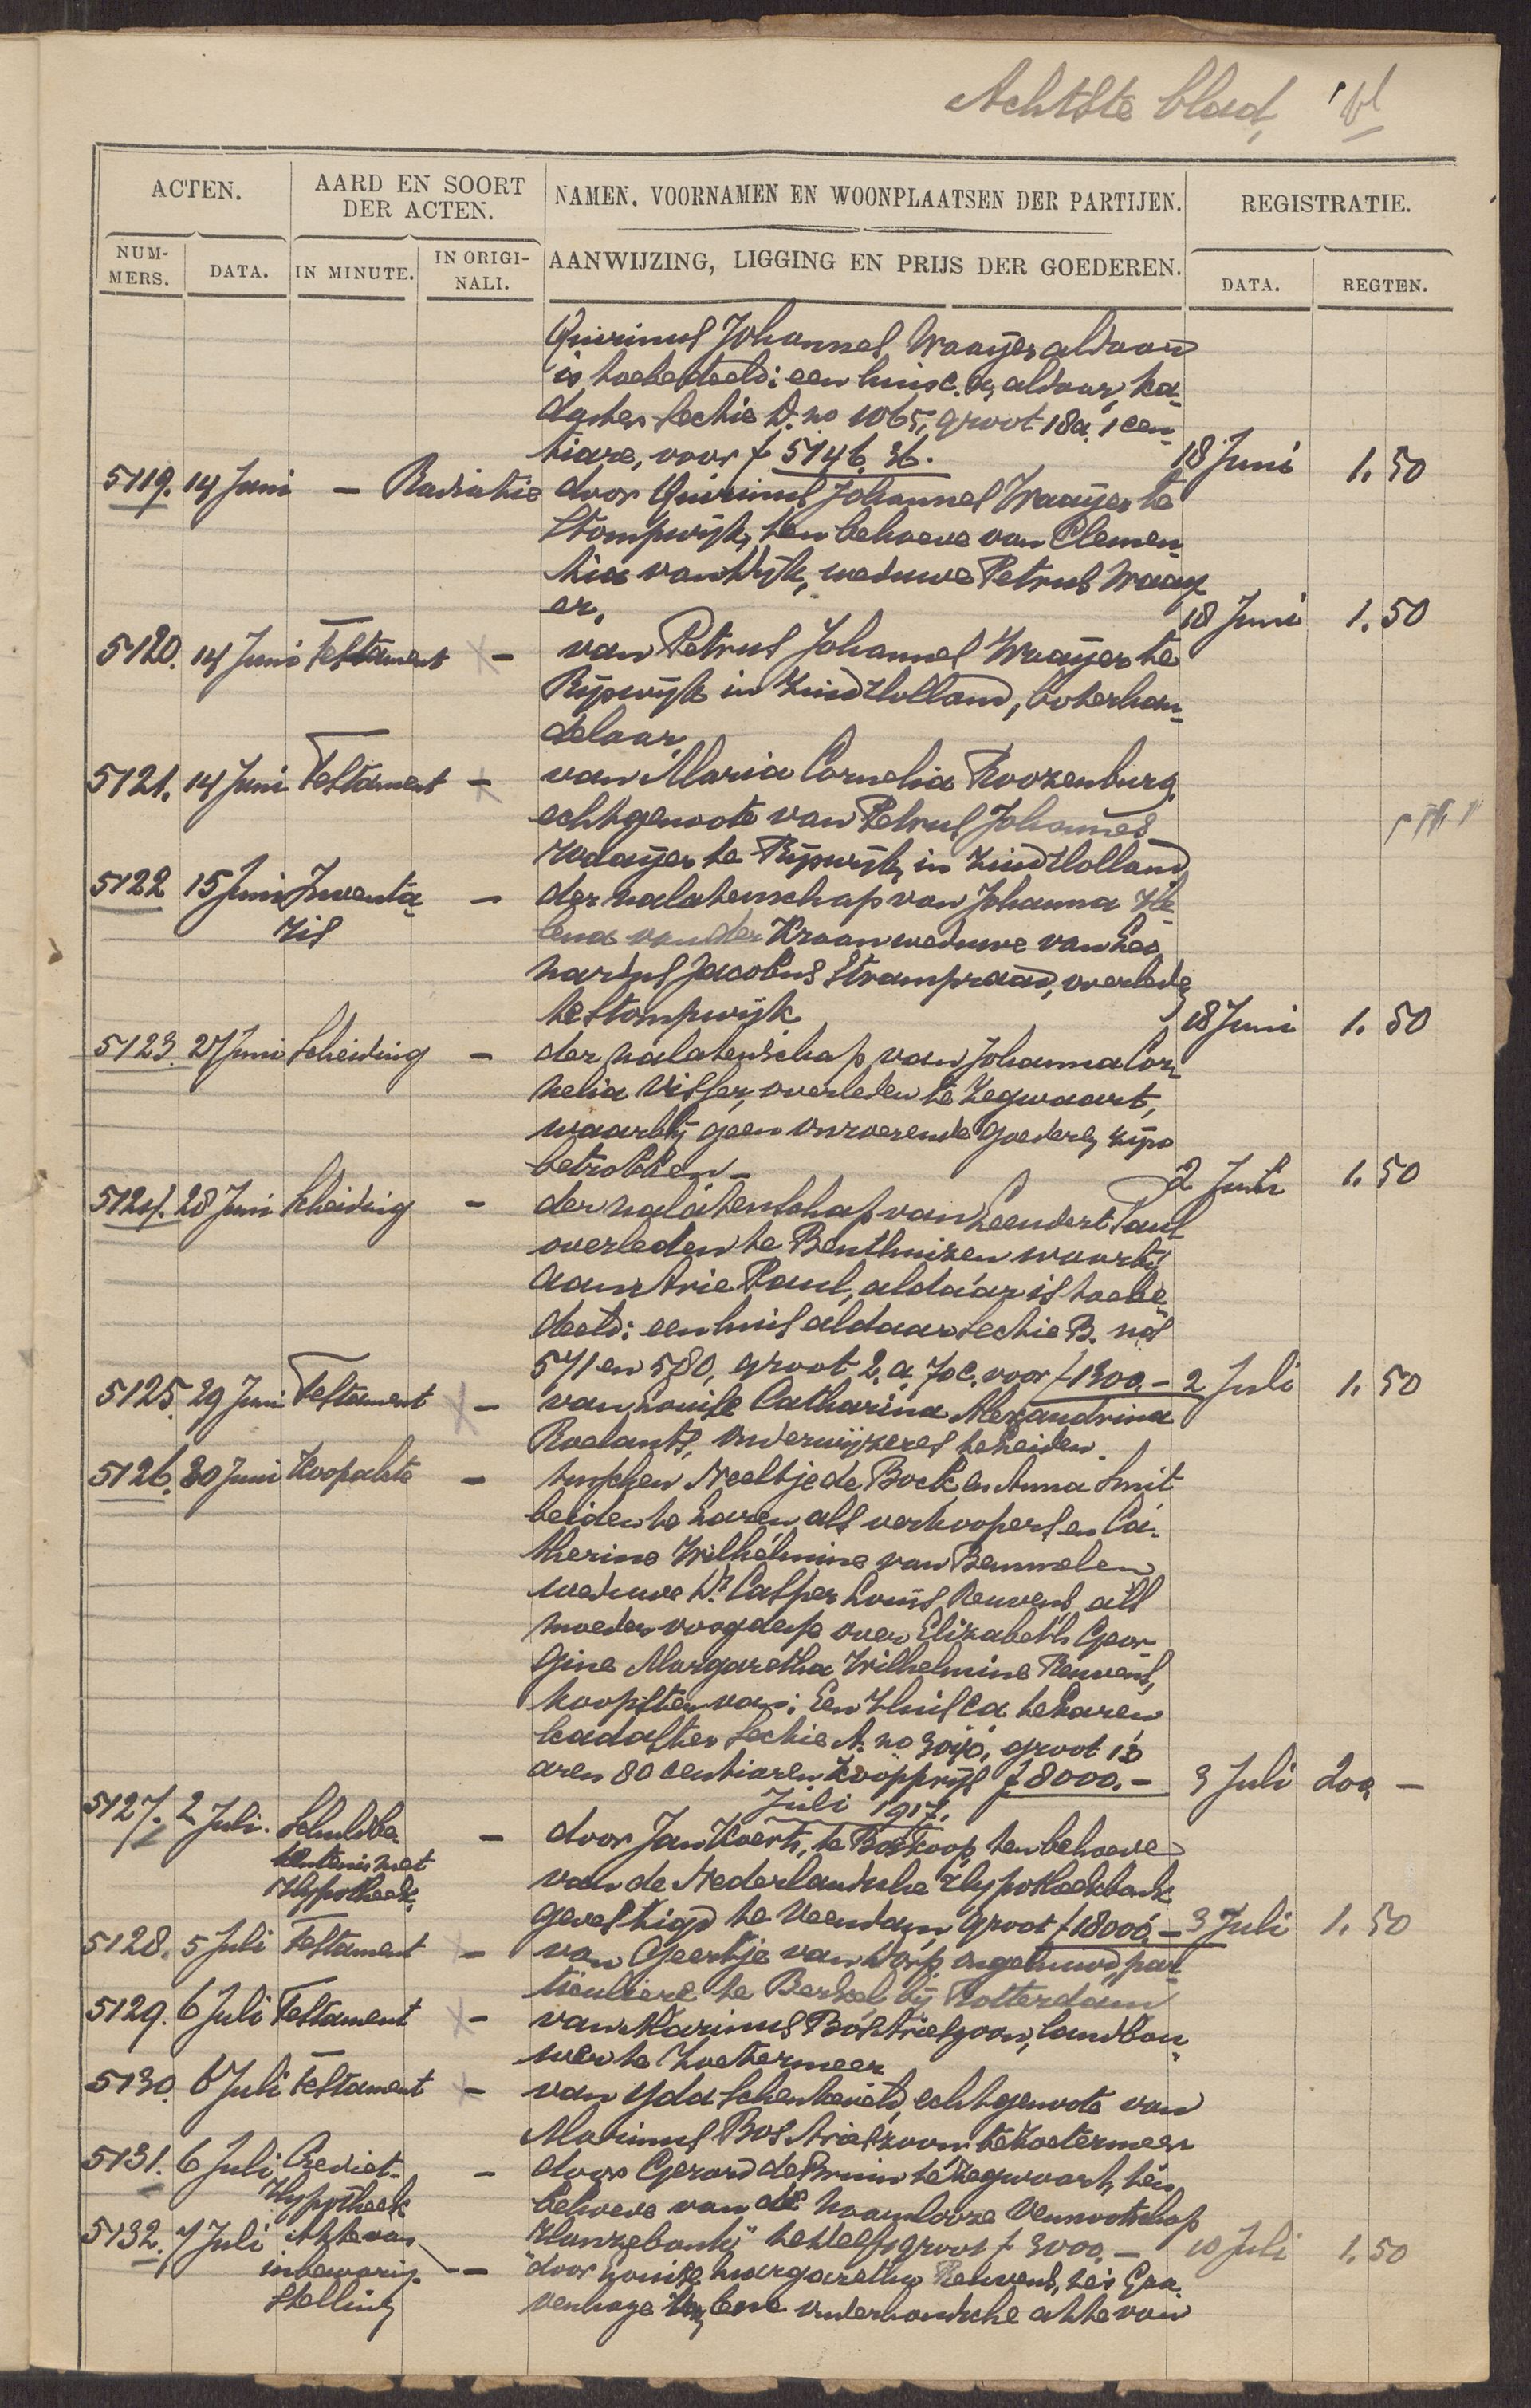 Achtste blad,
ACTEN. AARD EN SOORT DER ACTEN. NAMEN, VOORNAMEN EN WOONPLAATSEN DER PARTIJEN. REGISTRATIE.
NUM-MERS. DATA. IN MINUTE. IN ORIGI-NALI. AANWIJZING, LIGGING EN PRIJS DER GOEDEREN. DATA. REGTEN.
Quirinus Johannes Waaijer aldaar
is toebedeeld: een huis c.a. aldaar, ka-
daster Sectie D. no 1065, groot 18a. 1 cen-
tiare, voor f 5146.36. 18 Juni 1.50
5119. 14 Juni – Radiatie door Quirinus Johannes Waaijer te
Stompwijk, ten behoeve van Clemen-
tia van Wijk, weduwe Petrus Waaij
er. 18 Juni 1.50
5120. 14 Juni Testament x – van Petrus Johannes Waaijer te
Rijswijk in Zuid Holland, boterhan-
delaar.
5121. 14 Juni Testament x – van Maria Cornelia Roozenburg
echtgenoote van Petrus Johannes
Waaijer te Rijswijk in Zuid Holland
5122 15 Juni Inventa- – der nalatenschap van Johanna He-
ris lena van der Kraan weduwe van Leo
nardus Jacobus Strampraad, overleden
te Stompwijk 18 Juni 1.50
5123. 27 Juni Scheiding – der nalatenschap van Johanna Cor-
nelia Visser, overleden te Zegwaart,
waarbij geen onroerende goederen zijn
betrokken – 2 Juli 1.50
5124. 28 Juni Scheiding – der nalatenschap van Leendert Paul
overleden te Benthuizen waarbij
aan Arie Paul, aldaar is toebe
deeld: een huis aldaar Sectie B. nos
571 en 580, groot 2.a. 70c. voor f 1300.– 2 Juli 1.50
5125. 29 Juni Testament x – van Louise Catharina Alexandrina
Roelants, onderwijzeres te Leiden.
5126. 30 Juni Koopakte – tusschen Neeltje de Bock en Anna Smit
beiden te Laren als verkoopers en Ca-
therine Wilhelmine van Bemmelen
weduwe Dr. Casper Louis Reuvens als
moeder voogdesse over Elizabeth Geor
gine Margaretha Wilhelmine Reuvens,
koopster van: Een Huis ca te Laren
kadaster Sectie A. no groot 13
aren 80 centiaren Koopprijs f 8000.– 3 Juli 200 –
Juli 1917.
5127. 2 Juli. Schuldbe- – door Jan Koerts, te Boskoop, ten behoeve
kentenis met van de Nederlandsche Hypotheekbank
Hypotheek. gevestigd te Veendam, groot f 18000.– 3 Juli 1.50
5128. 5 Juli Testament x – van Geertje van Dorp, ongehuwd, par-
ticuliere te Berkel bij Rotterdam
5129. 6 Juli Testament x – van Marinus Bos Arieszoon, landbou-
wer te Zoetermeer
5130. 6 Juli Testament x – van Yda Schenkeveld, echtgenoote van
Marinus Bos Arieszoon te Zoetermeer
5131. 6 Juli Crediet- – door Gerard de Bruin te Zegwaart, ten
Hypotheek behoeve van de Naamlooze Vennootschap
"Hanzebank" te Delft groot f 3000.– 10 Juli 1.50
5132. 7 Juli Akte van – door Louise Margaretha Reuvens, te 's Gra
inbewaring- venhage eene onderhandsche akte van
stelling